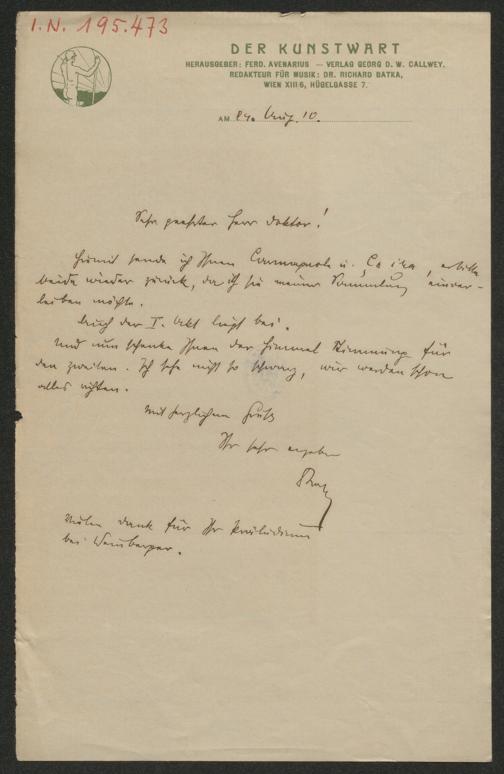 I.N. 195.473
DER KUNSTWART
HERAUSGEBER: FERD. AVENARIUS — VERLAG GEORG D. W. CALLWEY.
REDAKTEUR FÜR MUSIK: DR. RICHARD BATKA,
WIEN XIII/6, HÜGELGASSE 7.
AM 24. Aug. 10.
Sehr geehrter Herr Doktor!
Hiermit sende ich Ihnen Carmagnole u. Ça ira, erbitte
beide wieder zurück, da ich sie meiner Sammlung einver-
leiben möchte.
Auch der I. Akt liegt bei.
Und nun schenke Ihnen der Himmel Stimmung für
den zweiten. Ich sehe nicht so schwarz, wir werden schon
alles richten.
Mit herzlichem Gruß
Ihr sehr ergeben
Batka
Vielen Dank für Ihr Präludium
bei Weinberger.